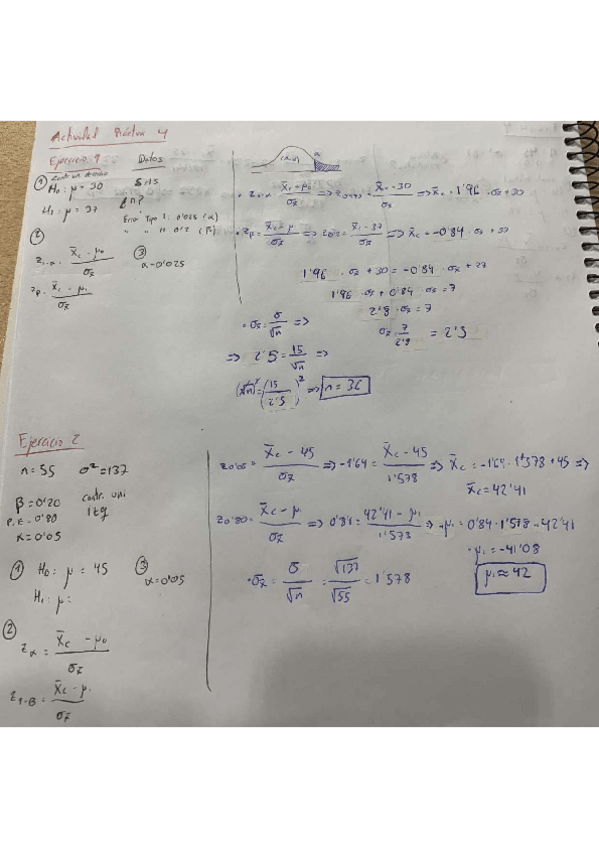 Actividad Práctica 4
Ejercicio 1
Datos
① Contr. uni. derecho
H₀: μ = 30
H₁: μ = 37
S=15
¿n?
Error Tipo I: 0'025 (α)
" " II 0'2 (β)
②
Z₁₋α = x̄c - μ₀ / σx̄
Zβ = x̄c - μ₁ / σx̄
③
α=0'025
α
· Z₁₋α = x̄c - μ₀ / σx̄ => Z₀'₉₇₅ = x̄c - 30 / σx̄ => x̄c = 1'96 · σx̄ + 30
· Zβ = x̄c - μ / σx̄ => Z₀'₂ = x̄c - 37 / σx̄ => x̄c = -0'84 · σx̄ + 37
1'96 · σx̄ + 30 = -0'84 · σx̄ + 37
1'96 · σx̄ + 0'84 · σx̄ = 7
2'8 · σx̄ = 7
σx̄ = 7 / 2'8 = 2'5
· σx̄ = σ / √n =>
=> 2'5 = 15 / √n =>
(√n)² = (15 / 2'5)² => n = 36
Ejercicio 2
n = 55 σ² = 137
β = 0'20
P.E = 0'80
α = 0'05
contr. uni
izq
① H₀: μ = 45
H₁: μ:
③
α=0'05
②
Zα = x̄c - μ₀ / σx̄
Z₁₋β = x̄c - μ₁ / σx̄
Z₀'₀₅ = x̄c - 45 / σx̄ => -1'64 = x̄c - 45 / 1'578 => x̄c = -1'64 · 1'578 + 45 =>
x̄c = 42'41
Z₀'₈₀ = x̄c - μ / σx̄ => 0'84 = 42'41 - μ₁ / 1'578 => -μ₁ = 0'84 · 1'578 - 42'41
· μ₁ = -41'08
· σx̄ = σ / √n = √137 / √55 = 1'578
μ₁ ≈ 42